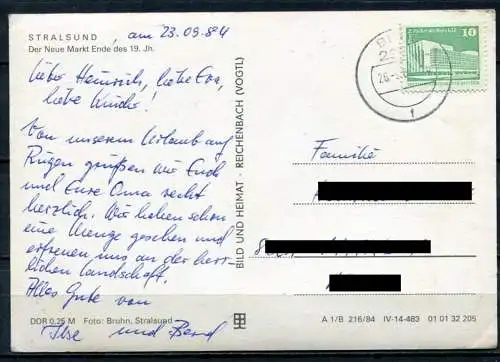 STRALSUND, am 23.09.84
Der Neue Markt Ende des 19. Jh.
Liebe Heinrich, liebe Eva,
liebe Kinder!
Von unserem Urlaub auf
Rügen grüßen wir Euch
und Eure Oma recht
herzlich. Wir haben schon
eine Menge gesehen und
erfreuen uns an der herr-
lichen Landschaft.
Alles Gute von
Ilse und Bernd
DDR 0,25 M Foto: Bruhn, Stralsund
BILD UND HEIMAT - REICHENBACH (VOGTL)
10
Familie
A 1/B 216/84 IV-14-483 01 01 32 205